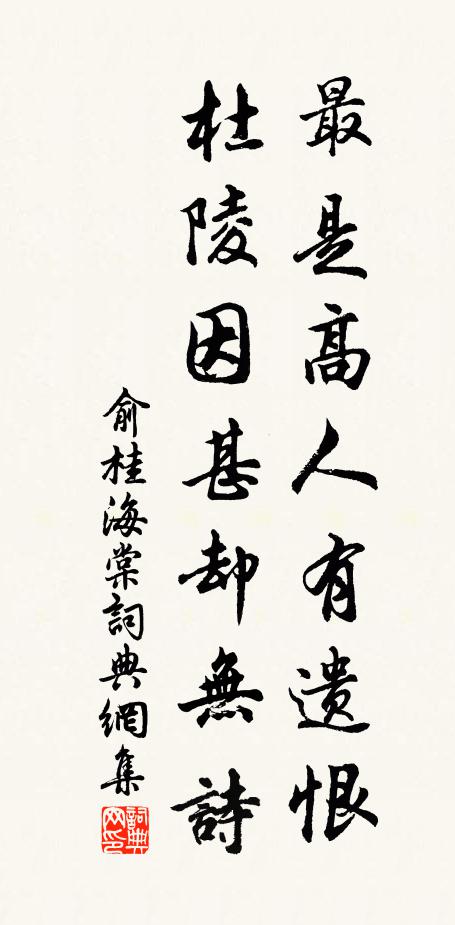 最是高人有遺恨
杜陵因甚却無詩
俞桂海棠詞典網集
詞典
网印